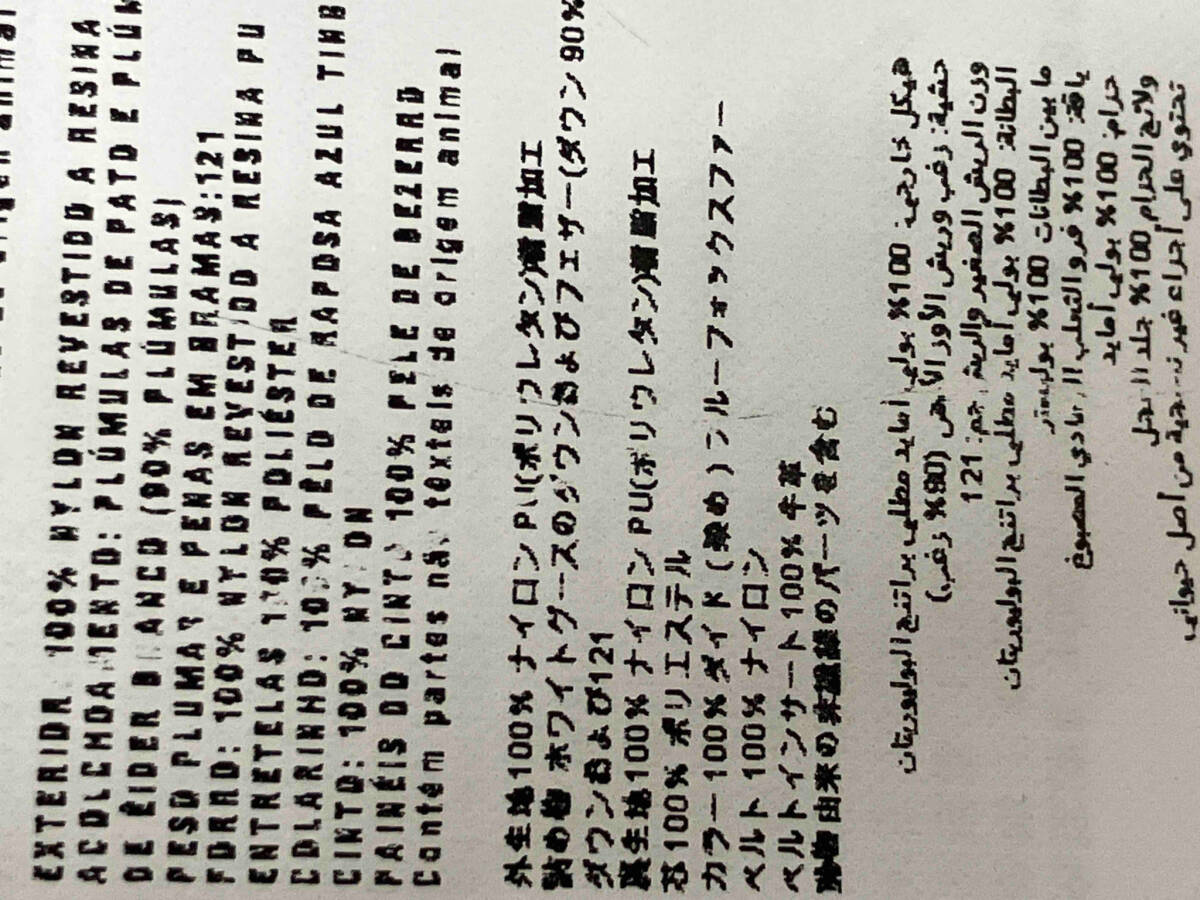 EXTERIOR 100% NYLON REVESTIDO A RESINA
ACOLCHOAMENTO: PLÚMULAS DE PATO E PLÚM
DE ÊIDER BRANCO (90% PLÚMULAS)
PESO PLUMAS E PENAS EM GRAMAS:121
FORRO: 100% NYLON REVESTIDO A RESINA PU
ENTRETELAS 100% POLIÉSTER
COLARINHO: 100% PÊLO DE RAPOSA AZUL TING
CINTO: 100% NYLON
PAINÉIS DO CINTO 100% PELE DE BEZERRO
Contém partes não têxteis de origem animal
外生地100% ナイロンPU(ポリウレタン)樹脂加工
詰め物 ホワイトグースのダウンおよびフェザー(ダウン90%
ダウンおよび121
裏生地100% ナイロンPU(ポリウレタン)樹脂加工
芯100% ポリエステル
カラー100%ダイド(染め)ブルーフォックスファー
ベルト 100% ナイロン
ベルトインサート 100% 牛革
動物由来の非繊維のパーツを含む
هيكل خارجي: 100% بولي أمايد مطلي براتنج البوليوريتان
حشية: زغب وريش الأوز الأبيض (90% زغب)
وزن الريش الصغير والريش جم: 121
البطانة: 100% بولي أمايد مطلي براتنج البوليوريتان
ما بين البطانات 100% بوليستر
ياقة: 100% فرو الثعلب الرمادي المصبوغ
حزام: 100% بولي أمايد
ولائج الحزام 100% جلد العجل
تحتوي على أجزاء غير نسجية من أصل حيواني